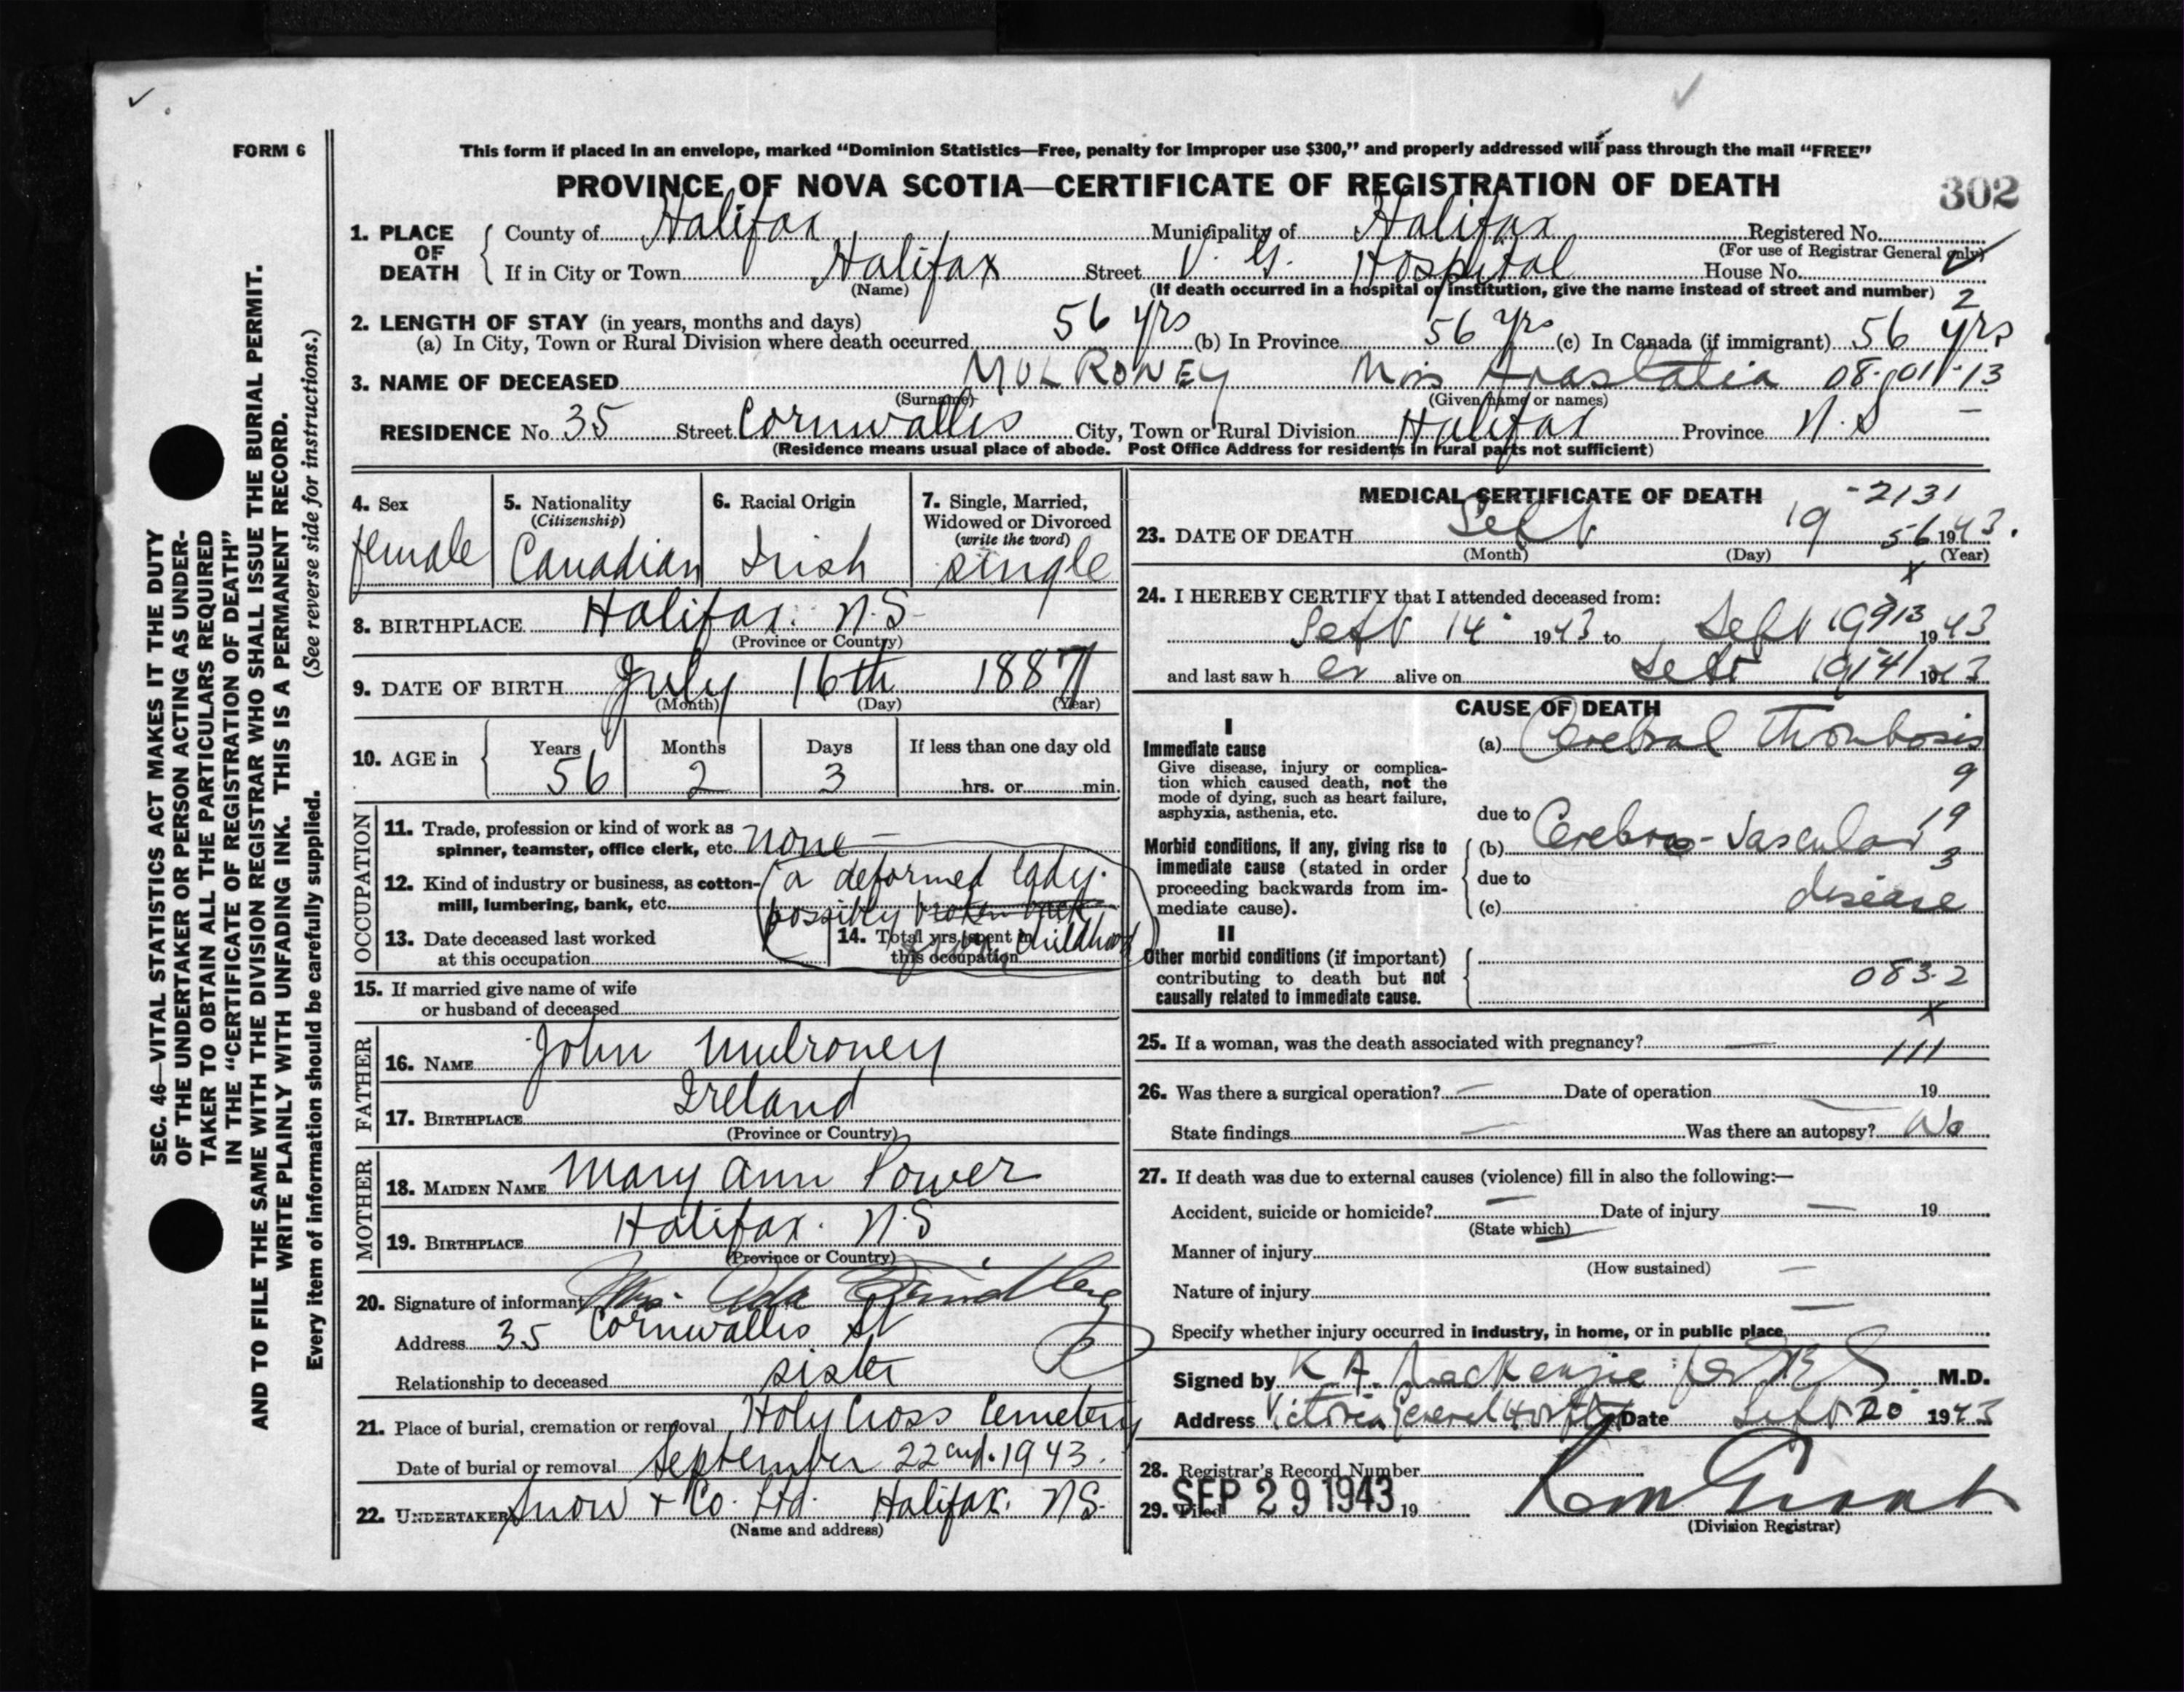 FORM 6
This form if placed in an envelope, marked “Dominion Statistics—Free, penalty for improper use $300,” and properly addressed will pass through the mail “FREE”
PROVINCE OF NOVA SCOTIA—CERTIFICATE OF REGISTRATION OF DEATH
302
1. PLACE OF DEATH County of Halifax Municipality of Halifax Registered No.
(For use of Registrar General only)
If in City or Town Halifax Street V. G. Hospital House No.
(Name) (If death occurred in a hospital or institution, give the name instead of street and number) 2
2. LENGTH OF STAY (in years, months and days)
(a) In City, Town or Rural Division where death occurred 56 yrs (b) In Province 56 yrs (c) In Canada (if immigrant) 56 yrs
3. NAME OF DECEASED MULRONEY Miss Anastatia 08-01-13
(Surname) (Given name or names)
RESIDENCE No. 35 Street Cornwallis City, Town or Rural Division Halifax Province N.S —
(Residence means usual place of abode. Post Office Address for residents in rural parts not sufficient)
4. Sex
female
5. Nationality
(Citizenship)
Canadian
6. Racial Origin
Irish
7. Single, Married,
Widowed or Divorced
(write the word)
single
8. BIRTHPLACE Halifax. N.S.
(Province or Country)
9. DATE OF BIRTH July 16th 1887
(Month) (Day) (Year)
10. AGE in Years Months Days If less than one day old
56 2 3 hrs. or min.
OCCUPATION
11. Trade, profession or kind of work as
spinner, teamster, office clerk, etc. none —
12. Kind of industry or business, as cotton- (a deformed lady.
mill, lumbering, bank, etc. possibly broken back
13. Date deceased last worked
at this occupation
14. Total yrs. spent in
this occupation
from childhood)
15. If married give name of wife
or husband of deceased
FATHER
16. NAME John Mulroney
17. BIRTHPLACE Ireland
(Province or Country)
MOTHER
18. MAIDEN NAME Mary Ann Power
19. BIRTHPLACE Halifax. N.S
(Province or Country)
20. Signature of informant Mrs. Ada
Address 35 Cornwallis St
Relationship to deceased sister
21. Place of burial, cremation or removal Holy Cross Cemetery
Date of burial or removal September 22nd. 1943.
22. UNDERTAKER Snow & Co. Ltd. Halifax. N.S.
(Name and address)
MEDICAL CERTIFICATE OF DEATH -2131
23. DATE OF DEATH Sept 19 56 1943.
(Month) (Day) (Year)
x
24. I HEREBY CERTIFY that I attended deceased from:
Sept 14 1943 to Sept 19 1943
and last saw h er alive on Sept 19 1943
CAUSE OF DEATH
I
Immediate cause
Give disease, injury or complica-
tion which caused death, not the
mode of dying, such as heart failure,
asphyxia, asthenia, etc.
(a) Cerebral Thrombosis
9
due to
19
Morbid conditions, if any, giving rise to
immediate cause (stated in order
proceeding backwards from im-
mediate cause).
(b) Cerebro-Vascular
3
due to
(c) disease
II
Other morbid conditions (if important)
contributing to death but not
causally related to immediate cause.
083-2
x
25. If a woman, was the death associated with pregnancy? —
111
26. Was there a surgical operation? — Date of operation — 19
State findings — Was there an autopsy? No
27. If death was due to external causes (violence) fill in also the following:—
Accident, suicide or homicide? — Date of injury — 19
(State which)
Manner of injury
(How sustained) —
Nature of injury
—
Specify whether injury occurred in industry, in home, or in public place
Signed by K. A. MacKenzie M.D.
Address Victoria General Hospital Date Sept 20 1943
28. Registrar's Record Number
29. Filed SEP 29 1943 19
(Division Registrar)
SEC. 46—VITAL STATISTICS ACT MAKES IT THE DUTY
OF THE UNDERTAKER OR PERSON ACTING AS UNDER-
TAKER TO OBTAIN ALL THE PARTICULARS REQUIRED
IN THE “CERTIFICATE OF REGISTRATION OF DEATH”
AND TO FILE THE SAME WITH THE DIVISION REGISTRAR WHO SHALL ISSUE THE BURIAL PERMIT.
WRITE PLAINLY WITH UNFADING INK. THIS IS A PERMANENT RECORD.
Every item of information should be carefully supplied. (See reverse side for instructions.)